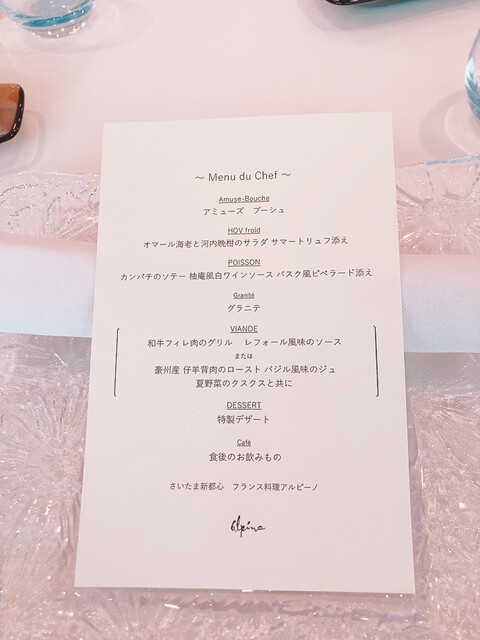 ～ Menu du Chef ～
Amuse-Bouche
アミューズ ブーシュ
HOV froid
オマール海老と河内晩柑のサラダ サマートリュフ添え
POISSON
カンパチのソテー 柚庵風白ワインソース バスク風ピペラード添え
Granité
グラニテ
VIANDE
和牛フィレ肉のグリル レフォール風味のソース
または
豪州産 仔羊背肉のロースト バジル風味のジュ
夏野菜のクスクスと共に
DESSERT
特製デザート
Café
食後のお飲みもの
さいたま新都心 フランス料理アルピーノ
alpino